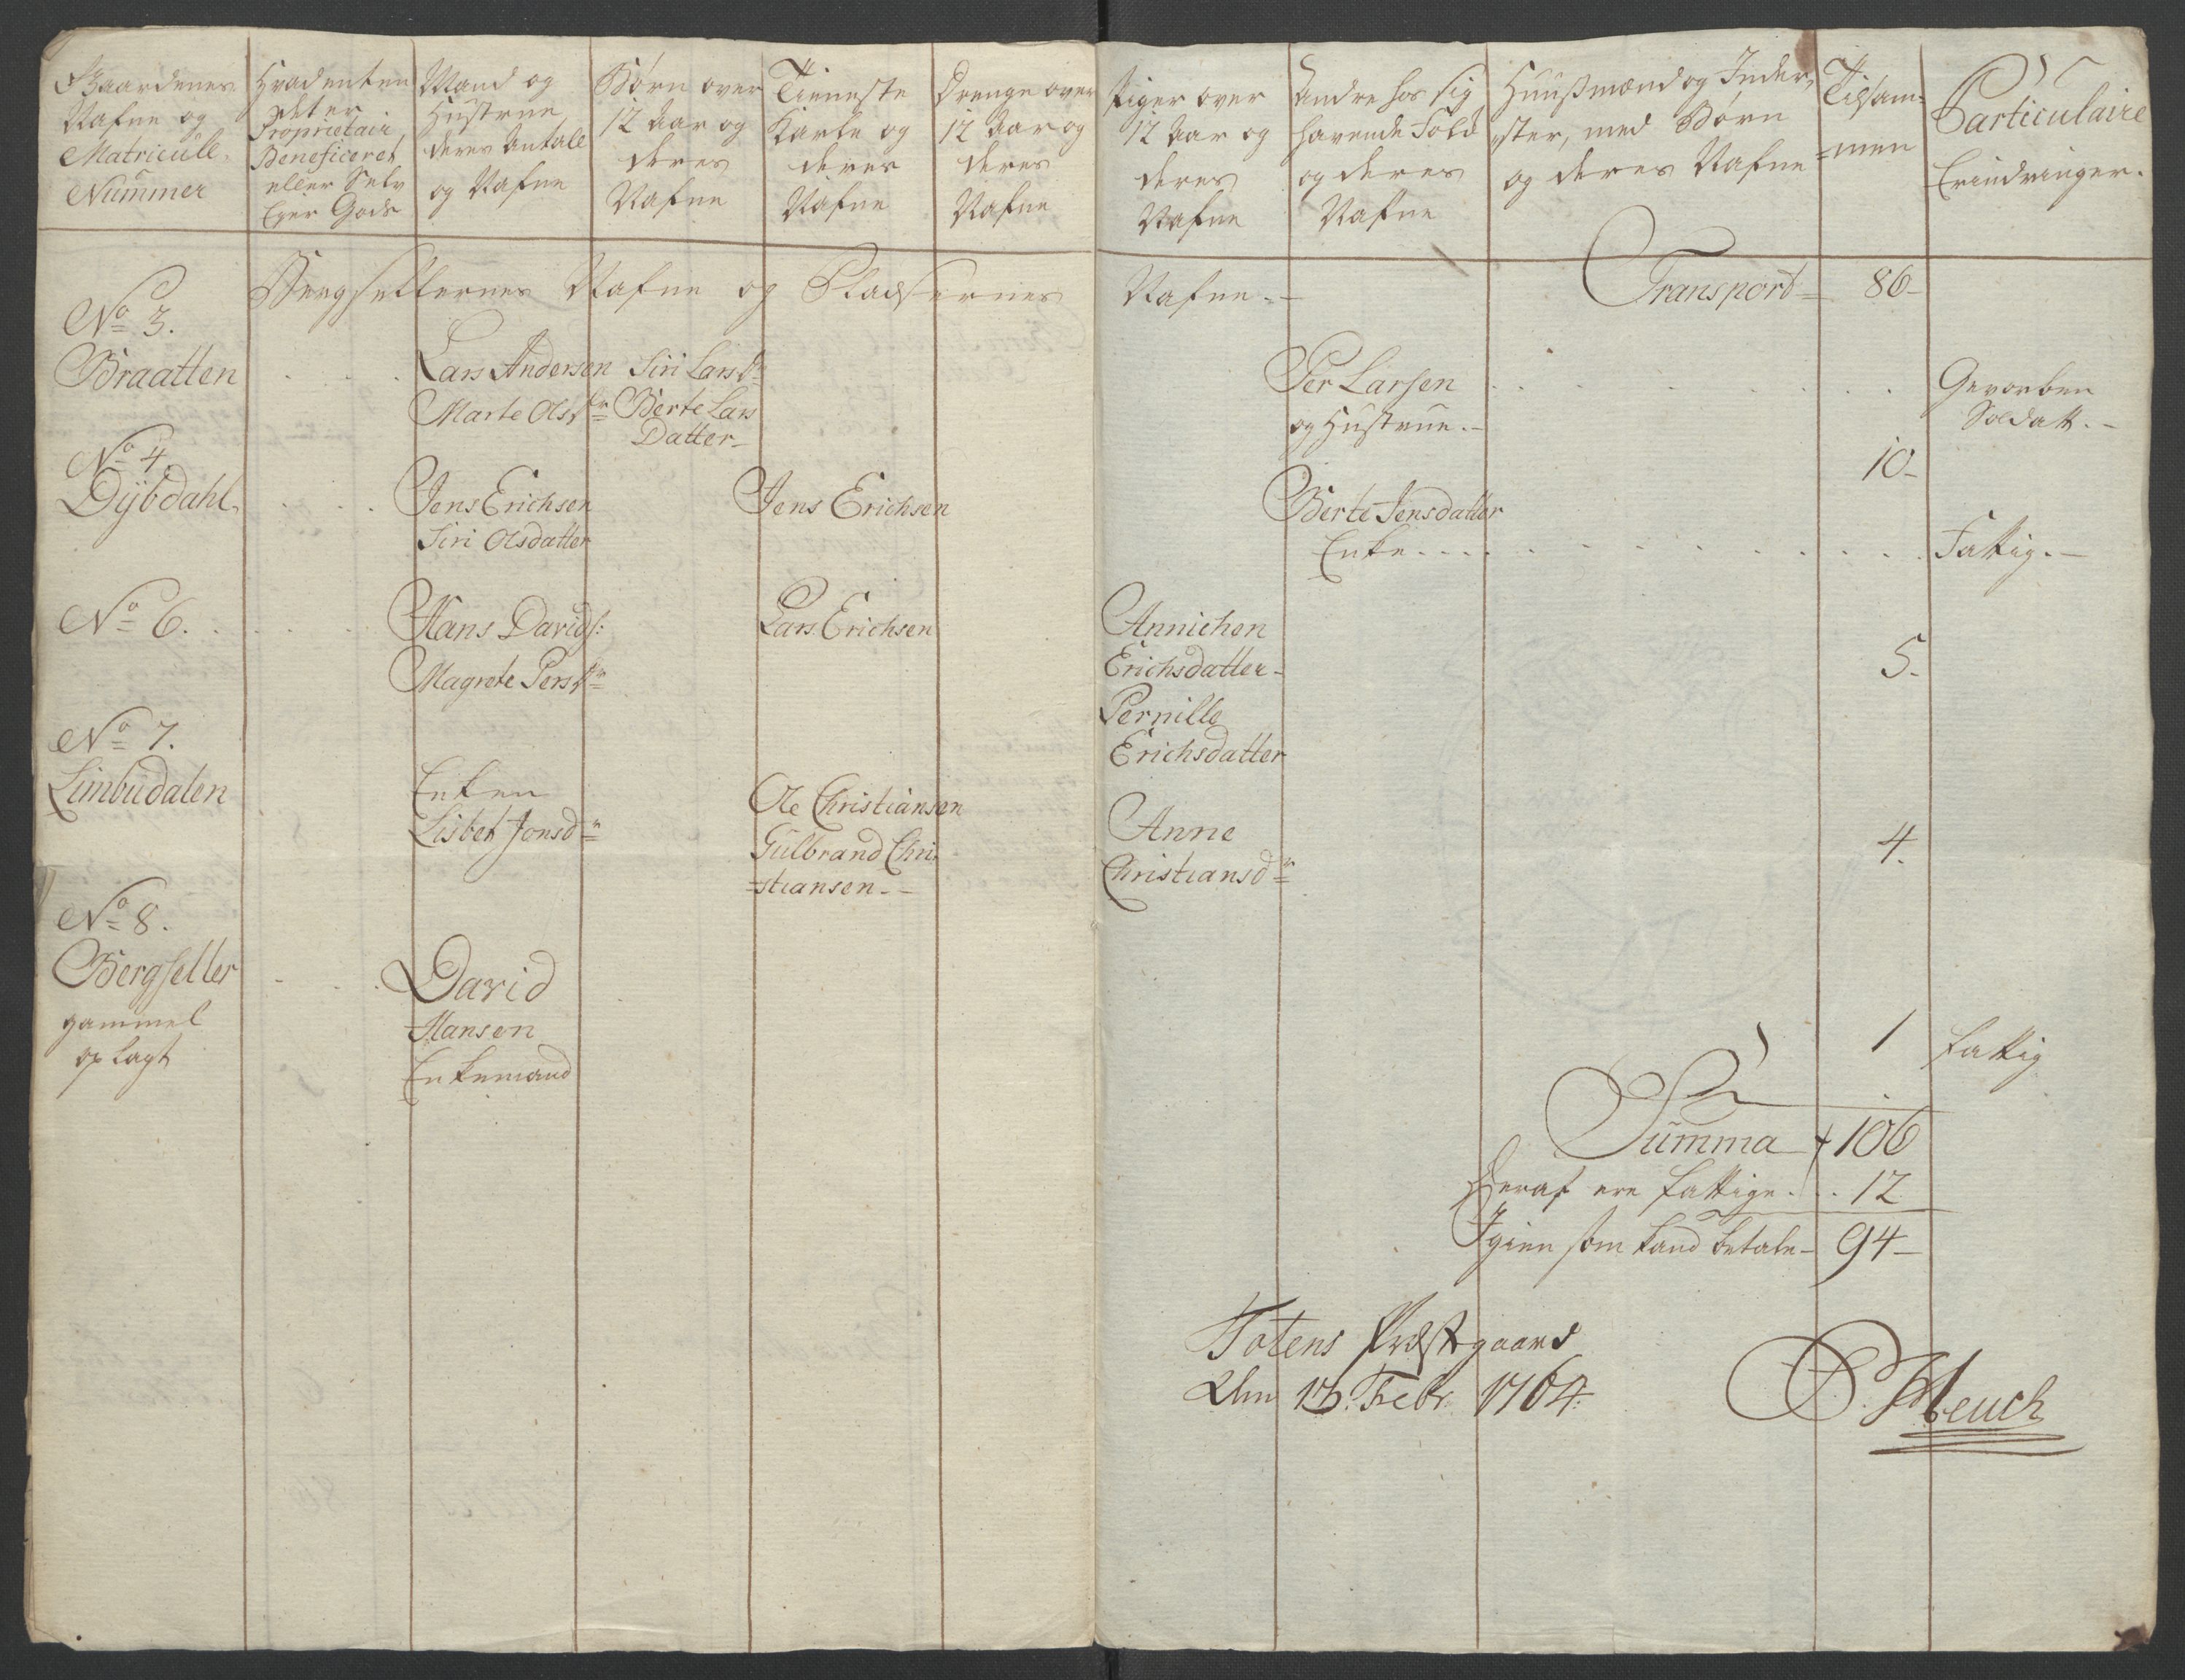 Gaardenes
Nafne og
Matricull,
Nummer
Hvad enten
det er
Proprietair
Beneficeret
eller Selv
Ejer Gods
Mand og
Hustrue
deres Antall
og Nafne
Børn over
12 Aar og
deres
Nafne
Tieneste
Karle og
deres
Nafne
Drenge over
12 Aar og
deres
Nafne
Piger over
12 Aar og
deres
Nafne
Andre hos sig
havende Folk
og deres
Nafne
Huusmænd og Inder,
ster, med Børn
og deres Nafne
Tilsam-
=men
Particulaire
Erindringer.
Bergsetternes Nafne og Pladsernes Nafne.-
Transport= 86-
No 3.
Braatten . . . Lars Andersen Siri Larsdr
Marte Olsdr Berte Lars
Datter-
Per Larsen . . . . . . .
og Hustrue.-
Gevorben
Soldatt.-
10-
No 4.
Dÿbdahl. . . . Jens Erichsen
Siri Olsdatter
Jens Erichsen
Berte Jensdatter
Enke. . . . . . . . . . . Fattig.-
No 6. . . . Hans Davids:
Magrete Persdr
Lars Erichsen
Annichen
Erichsdatter-
Pernille
Erichsdatter
5.
No 7.
Limbudalen
Enken
Lisbet Jonsdr
Ole Christiansen
Gulbrand Chri
=stiansen.-
Anne
Christiansdr
4.
No 8.
Bergsetter
gammel
op lagt
- . . David
Hansen
Enkemand
1 fattig
Summa + 106
Heraf ere fattige. . . 12
Igien som kand betale- 94-
Totens Præstgaard
Den 16. Febr. 1764.
P. Heuch